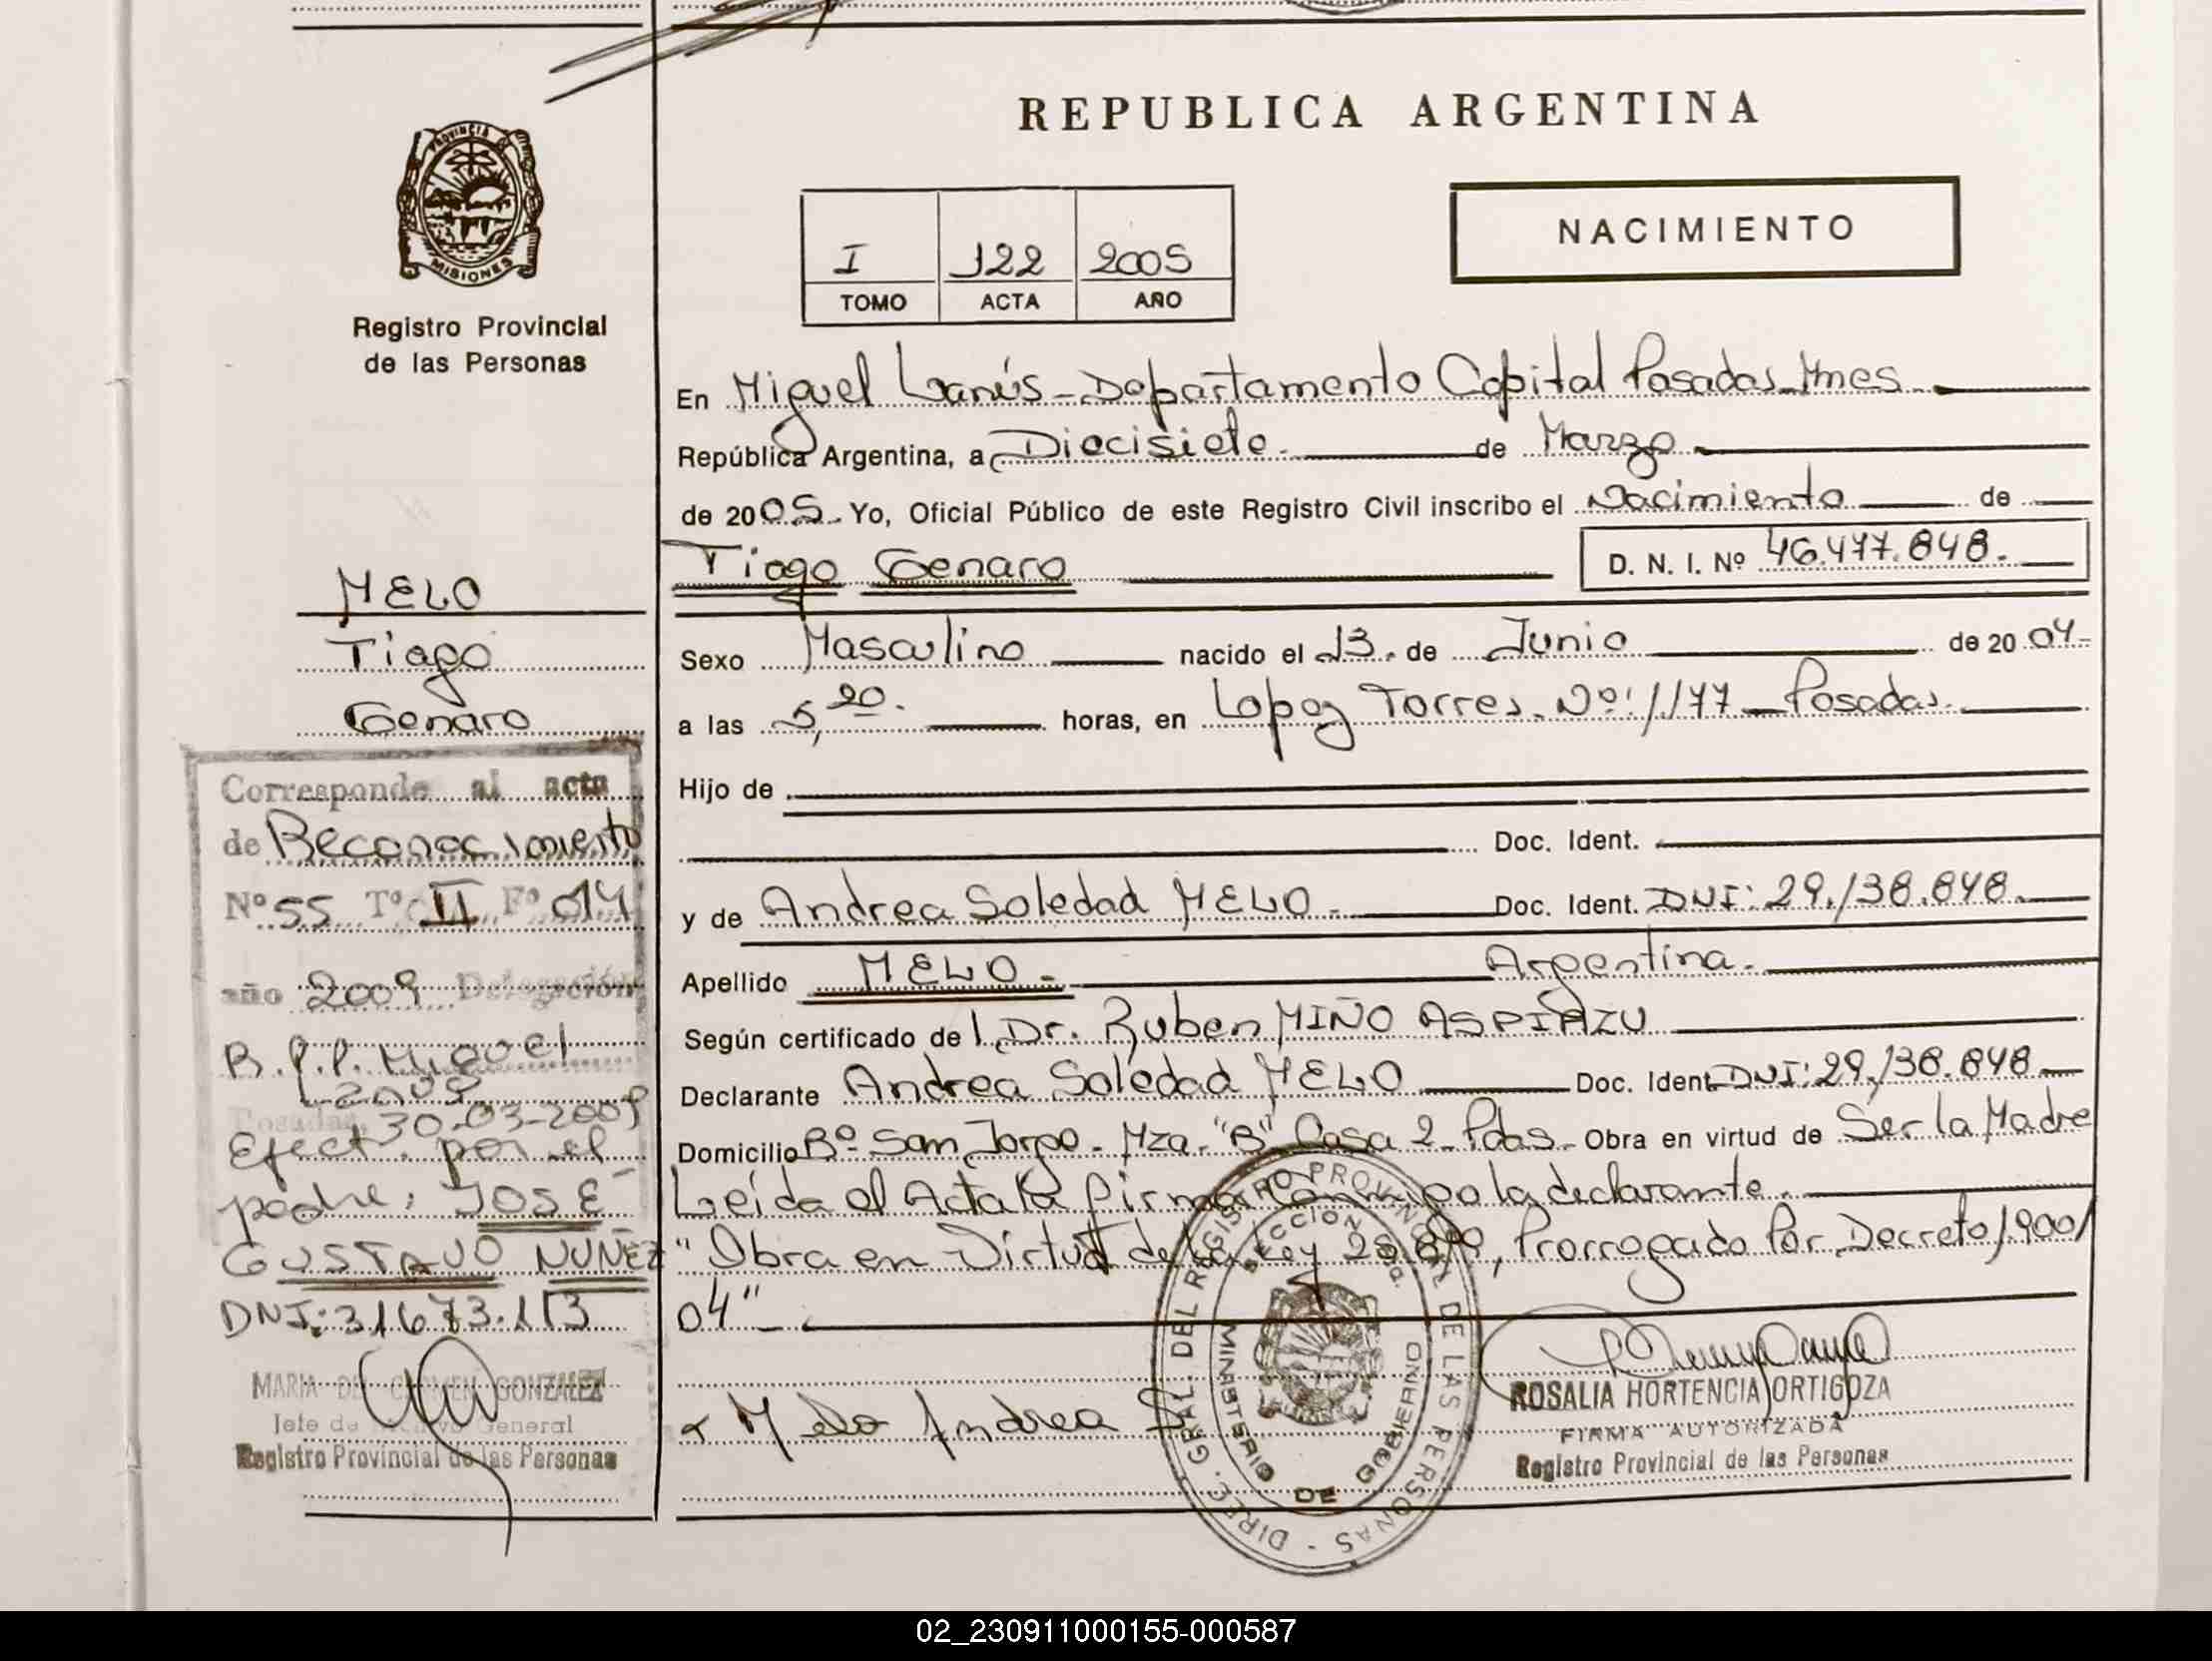 PROVINCIA
MISIONES
Registro Provincial
de las Personas
MELO
Tiago
Genaro
Corresponde al acta
de Reconocimiento
Nº 55 Tº II Fº 014
año 2009 Delegación
R.P.P. Miguel
Lanús
Posadas, 30-03-2009
Efect. por el
padre: JOSÉ
GUSTAVO NUÑEZ
DNI: 31673.113
MARIA DEL CARMEN GONZALEZ
Jefe de Archivo General
Registro Provincial de las Personas
REPUBLICA ARGENTINA
I 122 2005
TOMO ACTA AÑO
NACIMIENTO
En Miguel Lanús - Departamento Capital Posadas Mnes
República Argentina, a Diecisiete de Marzo
de 2005 Yo, Oficial Público de este Registro Civil inscribo el Nacimiento de
Tiago Genaro D. N. I. Nº 46.477.848.
Sexo Masculino nacido el 13 de Junio de 2004
a las 5,20 horas, en Lopez Torres Nº: 1177 - Posadas.
Hijo de
Doc. Ident.
y de Andrea Soledad MELO Doc. Ident. DNI: 29.138.848.
Apellido MELO Argentina.
Según certificado del Dr. Ruben MIÑO ASPIAZU
Declarante Andrea Soledad MELO Doc. Ident DNI: 29.138.848
Domicilio Bº San Jorge - Mza. "B" Casa 2 - Pdas Obra en virtud de Ser la Madre
Leída el Acta la firma conmigo la declarante.
"Obra en Virtud de la Ley Prorrogado Por Decreto 1900/
04"
Melo Andrea S
DIREC. GRAL. DEL REGISTRO PROVINCIAL DE LAS PERSONAS
MINISTERIO DE GOBIERNO
ROSALIA HORTENCIA ORTIGOZA
FIRMA AUTORIZADA
Registro Provincial de las Personas
02_230911000155-000587